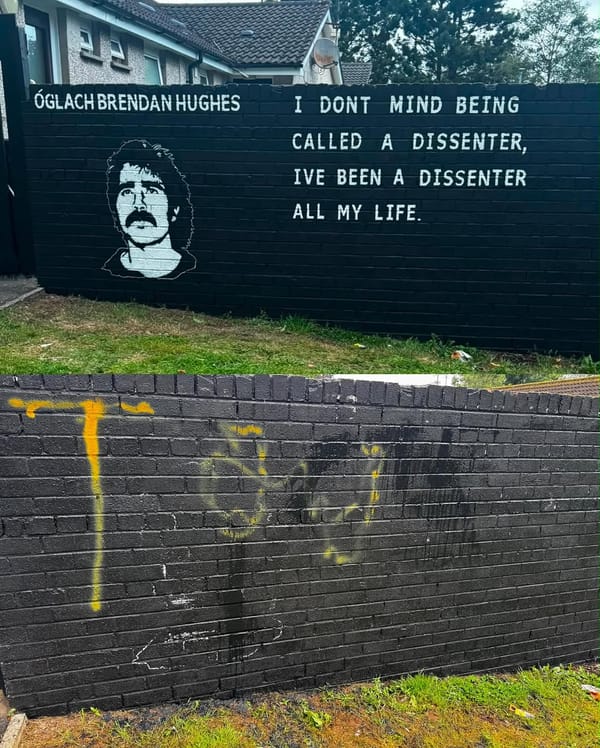 ÓGLACH BRENDAN HUGHES
I DONT MIND BEING
CALLED A DISSENTER,
IVE BEEN A DISSENTER
ALL MY LIFE.
T